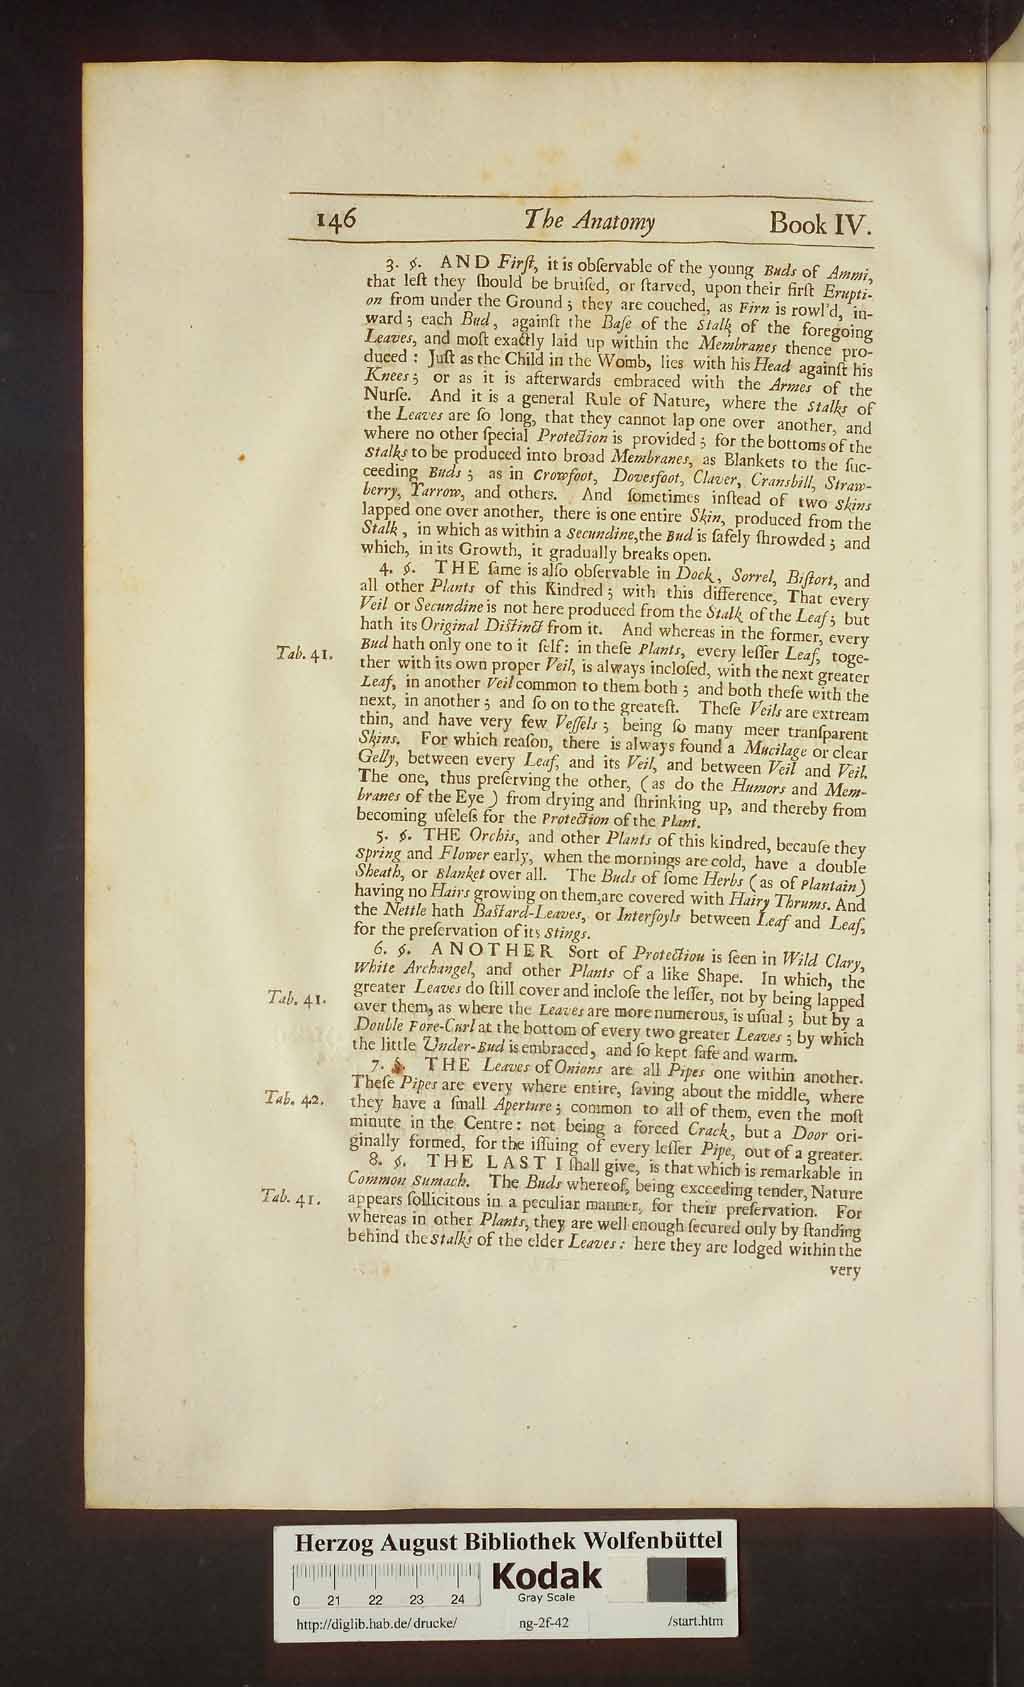 146 The Anatomy Book IV.
3. §. AND Firſt, it is obſervable of the young Buds of Ammi,
that leſt they ſhould be bruiſed, or ſtarved, upon their firſt Erupti-
on from under the Ground; they are couched, as Firn is rowl'd, in-
ward; each Bud, againſt the Baſe of the Stalk of the foregoing
Leaves, and moſt exactly laid up within the Membranes thence pro-
duced: Juſt as the Child in the Womb, lies with his Head againſt his
Knees; or as it is afterwards embraced with the Armes of the
Nurſe. And it is a general Rule of Nature, where the Stalks of
the Leaves are ſo long, that they cannot lap one over another, and
where no other ſpecial Protection is provided; for the bottoms of the
Stalks to be produced into broad Membranes, as Blankets to the ſuc-
ceeding Buds; as in Crowfoot, Dovesfoot, Claver, Cransbill, Straw-
berry, Yarrow, and others. And ſometimes inſtead of two Skins
lapped one over another, there is one entire Skin, produced from the
Stalk, in which as within a Secundine, the Bud is ſafely ſhrowded; and
which, in its Growth, it gradually breaks open.
4. §. THE ſame is alſo obſervable in Dock, Sorrel, Biſtort, and
all other Plants of this Kindred; with this difference, That every
Veil or Secundine is not here produced from the Stalk of the Leaf; but
hath its Original Diſtinct from it. And whereas in the former, every
Tab. 41. Bud hath only one to it ſelf: in theſe Plants, every leſſer Leaf, toge-
ther with its own proper Veil, is always incloſed, with the next greater
Leaf, in another Veil common to them both; and both theſe with the
next, in another; and ſo on to the greateſt. Theſe Veils are extream
thin, and have very few Veſſels; being ſo many meer tranſparent
Skins. For which reaſon, there is always found a Mucilage or clear
Gelly, between every Leaf, and its Veil, and between Veil and Veil.
The one, thus preſerving the other, (as do the Humors and Mem-
branes of the Eye) from drying and ſhrinking up, and thereby from
becoming uſeleſs for the Protection of the Plant.
5. §. THE Orchis, and other Plants of this kindred, becauſe they
Spring and Flower early, when the mornings are cold, have a double
Sheath, or Blanket over all. The Buds of ſome Herbs (as of Plantain)
having no Hairs growing on them, are covered with Hairy Thrums. And
the Nettle hath Baſtard-Leaves, or Interfoyls between Leaf and Leaf,
for the preſervation of its Stings.
6. §. ANOTHER Sort of Protection is ſeen in Wild Clary,
White Archangel, and other Plants of a like Shape. In which, the
Tab. 41. greater Leaves do ſtill cover and incloſe the leſſer, not by being lapped
over them, as where the Leaves are more numerous, is uſual; but by a
Double Fore-Curl at the bottom of every two greater Leaves; by which
the little Under-Bud is embraced, and ſo kept ſafe and warm.
7. §. THE Leaves of Onions are all Pipes one within another.
Theſe Pipes are every where entire, ſaving about the middle, where
Tab. 42. they have a ſmall Aperture; common to all of them, even the moſt
minute in the Centre: not being a forced Crack, but a Door ori-
ginally formed, for the iſſuing of every leſſer Pipe, out of a greater.
8. §. THE LAST I ſhall give, is that which is remarkable in
Common Sumach. The Buds whereof, being exceeding tender, Nature
Tab. 41. appears ſollicitous in a peculiar manner, for their preſervation. For
whereas in other Plants, they are well enough ſecured only by ſtanding
behind the Stalks of the elder Leaves: here they are lodged within the
very
Herzog August Bibliothek Wolfenbüttel
Kodak
Gray Scale
0 21 22 23 24
http://diglib.hab.de/drucke/ ng-2f-42 /start.htm